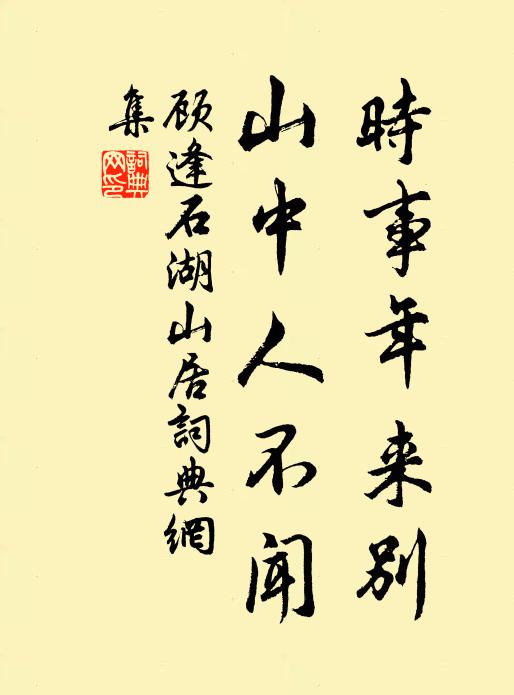 時事年来别
山中人不闻
顾逢石湖山居詞典網
集
詞典
网印